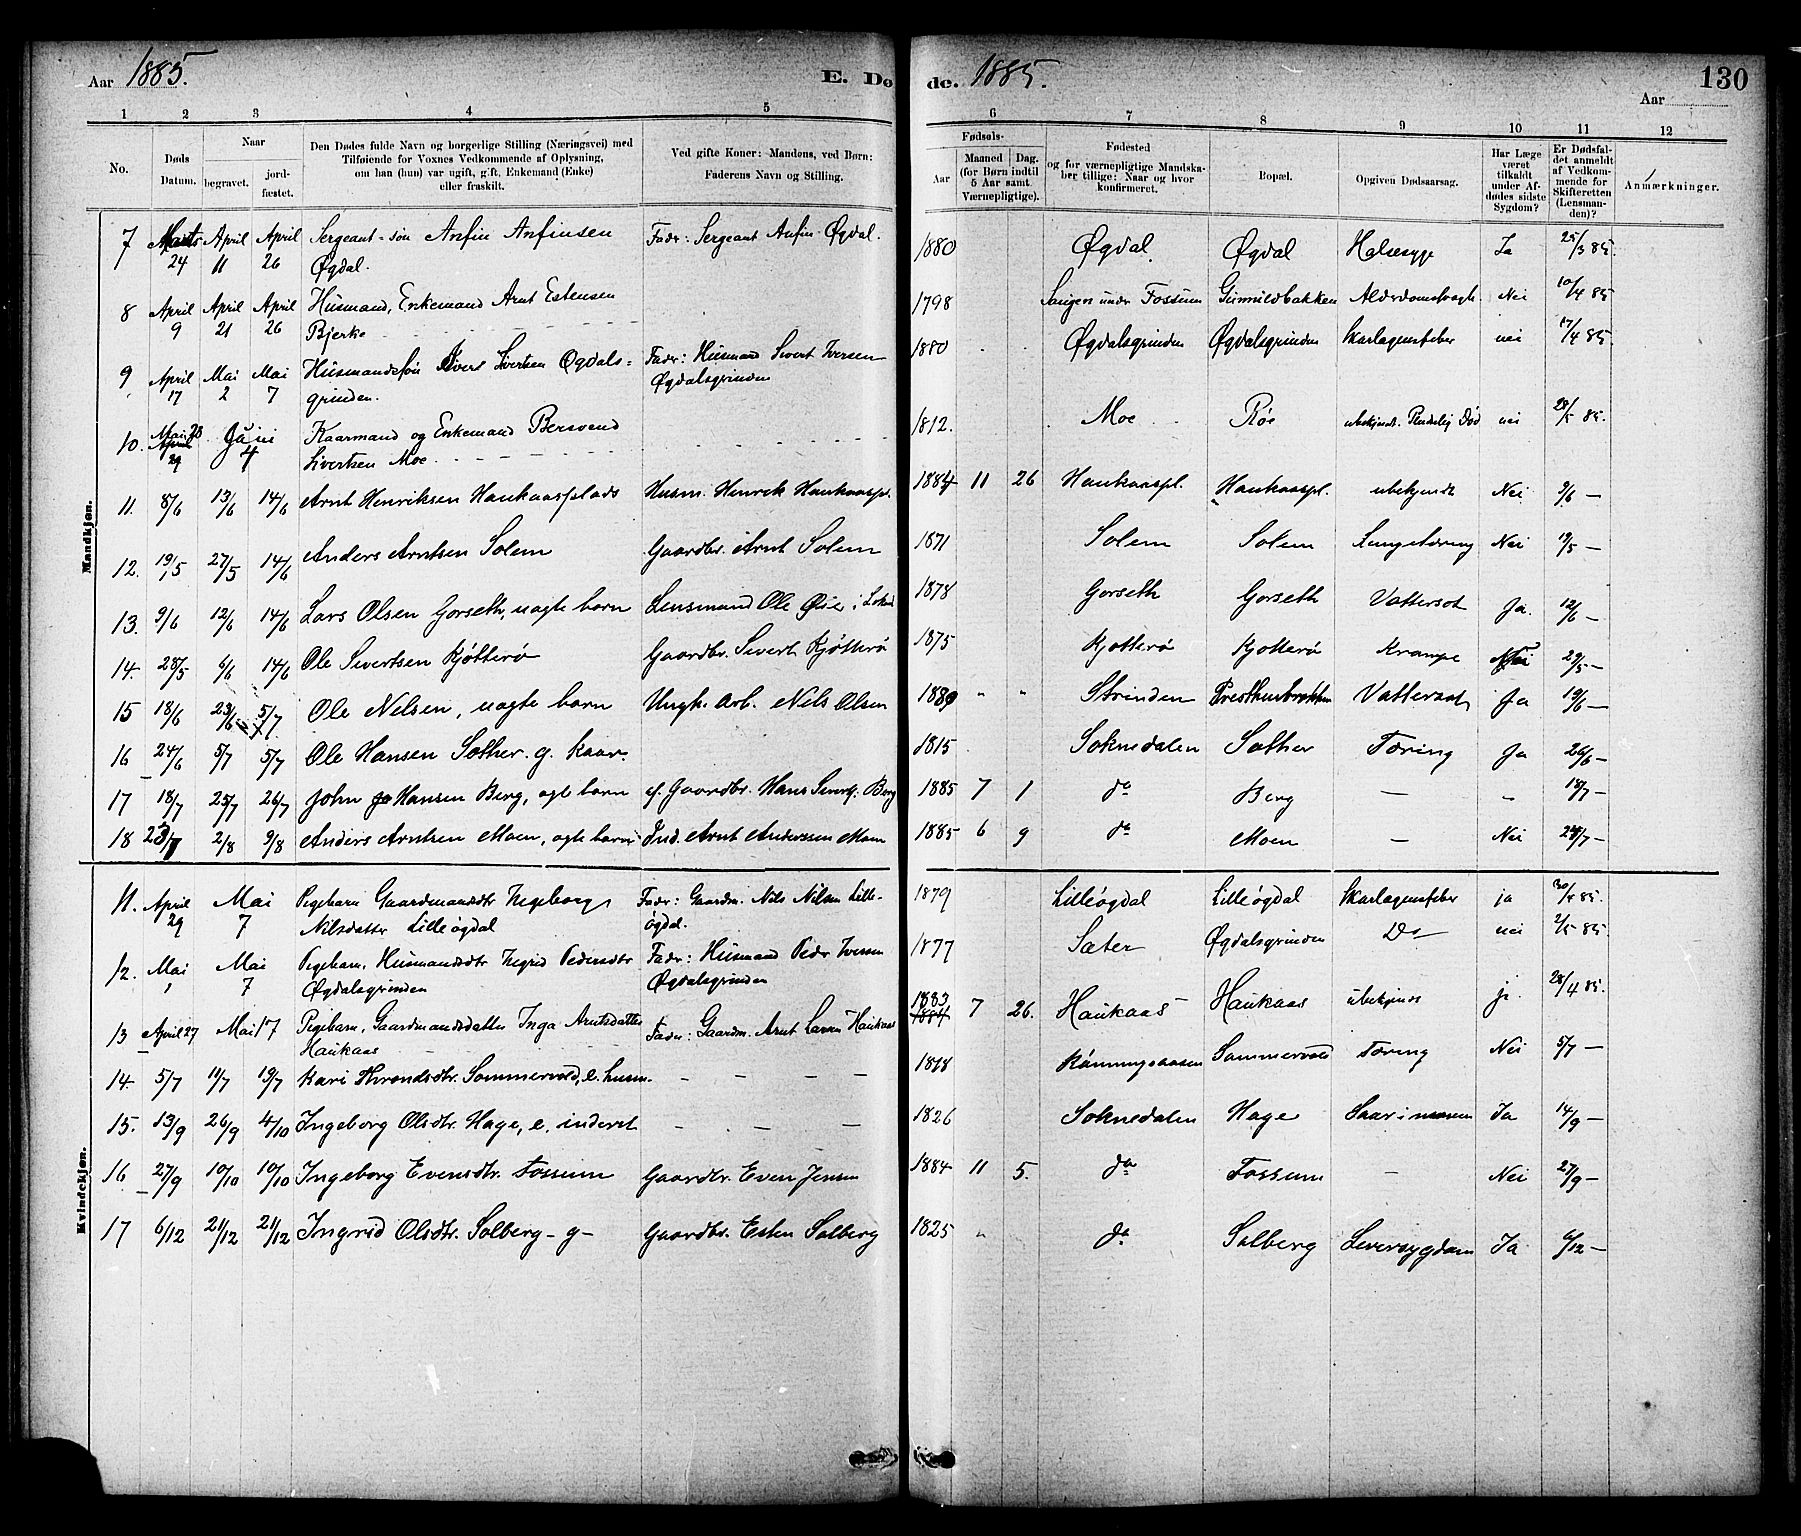 Aar 1885. E. Dø
de. 1885. Aar 130
1 2 3 4 5
6 7 8 9 10 11 12
No. Døds Datum. Naar begravet. jordfæstet. Den Dødes fulde Navn og borgerlige Stilling (Næringsvei) med
Tilføiende for Voxnes Vedkommende af Oplysning,
om han (hun) var ugift, gift, Enkemand (Enke)
eller fraskilt.
Ved gifte Koner: Mandens, ved Børn:
Faderens Navn og Stilling.
Fødsels- Aar Maaned (for Børn indtil 5 Aar samt Værnepligtige). Dag.
Fødested
og for værnepligtige Mandskaber tillige: Naar og hvor
konfirmeret.
Bopæl. Opgiven Dødsaarsag.
Har Læge været tilkaldt under Afdødes sidste Sygdom?
Er Dødsfaldet anmeldt af Vedkommende for Skifteretten (Lensmanden)?
Anmærkninger.
Mandkjøn.
7 Marts 24 April 11 April 26 Sergeant-søn Anfin Anfinsen Øgdal. Fader: Sergeant Anfin Øgdal. 1880 Øgdal Øgdal Halssyge Ja 25/3 85.
8 April 9 April 21 April 26 Husmand, Enkemand Arnt Estensen Bjerke 1798 under Fossum Gunnildbakken Nei 10/4 85
9 April 17 Mai 2 Mai 7 Husmandssøn Ivers Sivertsen Øgdalsgrinden. Fader: Husmand Sivert Iversen Øgdalsgrinden 1880 Øgdalsgrinden Øgdalsgrinden Skarlagensfeber nei 17/4 85.
10. Mai 28 Juni 4 Kaarmand og Enkemand Bersvend Sivertsen Moe 1812. Moe Røe ubekjendt. Pludselig Død nei 28/5 85.
11. 8/6 13/6 14/6 Arnt Henriksen Haukaasplads Husm. Henrik Haukaaspl. 1884 11 26 Haukaaspl. Haukaaspl. ubekjendt Nei 9/6 —
12. 19/5 27/5 14/6 Anders Arntsen Solem Gaardbr. Arnt Solem 1871 Solem Solem Lungetæring Nei 19/5 —
13. 9/6 12/6 14/6 Lars Olsen Gorseth, uægte barn Lensmand Ole Øie i 1878 Gorseth Gorseth Vattersot Ja. 12/6 —
14. 28/5 6/6 14/6 Ole Sivertsen Kjøtterø Gaardbr. Sivert Kjøtterø 1875 Kjøtterø Kjøtterø Krampe 29/5 —
15 18/6 23/6 5/7 Ole Nelsen, uægte barn Ungk. arb. Nels Olsen 1880 " " Strinden Vattersot Ja 19/6 —
16 24/6 5/7 5/7 Ole Hansen Sæther. g. kaar. 1815 Soknedalen Sæther Tæring Ja 26/6 —
17 18/7 25/7 26/7 John Hansen Berg, ægte barn Gaardbr. Hans Berg 1885 7 1 do Berg — " 18/7 —
18 2/8 9/8 Anders Arntsen Moen, ægte barn Ind. Arnt Anderssen Moen 1885 6 9 do Moen — Nei 24/7 —
Kvindekjøn.
11. April 29 Mai 7 Pigebarn Gaardmandsdtr Ingeborg Nilsdatter Lilleøgdal Fader: Gaardm. Nils Nilsen Lilleøgdal. 1879 Lilleøgdal Lilleøgdal Skarlagensfeber ja 30/4 85.
12. Mai 1 Mai 7 Pigebarn, Husmandsdtr Ingrid Pedersdtr Øgdalsgrinden Fader: Husmand Peder Iversen Øgdalsgrinden 1877 Sæter Øgdalsgrinden Do nei 2/5 85.
13 April 27 Mai 17 Pigebarn, Gaardmandsdatter Inga Arntsdatter Haukaas Fader: Gaardm. Arnt Larsen Haukaas 1883 1884 7 26. Haukaas Haukaas ubekjendt ja. 28/4 85.
14. 5/7 11/7 19/7 Kari Throndsdtr. Sommervold, e. husm. — — — — Rønningsaasen Sommervold Tæring Nei 5/7 —
15. 13/9 26/9 4/10 Ingeborg Olsdtr. Hage, e. inderst — — — 1826 Soknedalen Hage Saar i maven Ja 14/9 —
16 27/9 10/10 10/10 Ingeborg Evensdtr. Fossum Gaardbr. Even Jensen 1884 11 5. do Fossum — Nei 27/9 —
17 6/12 21/12 21/12 Ingrid Olsdtr. Solberg - g - Gaardbr. Esten Solberg 1825 " do Solberg Leversygdom Ja 6/12 —